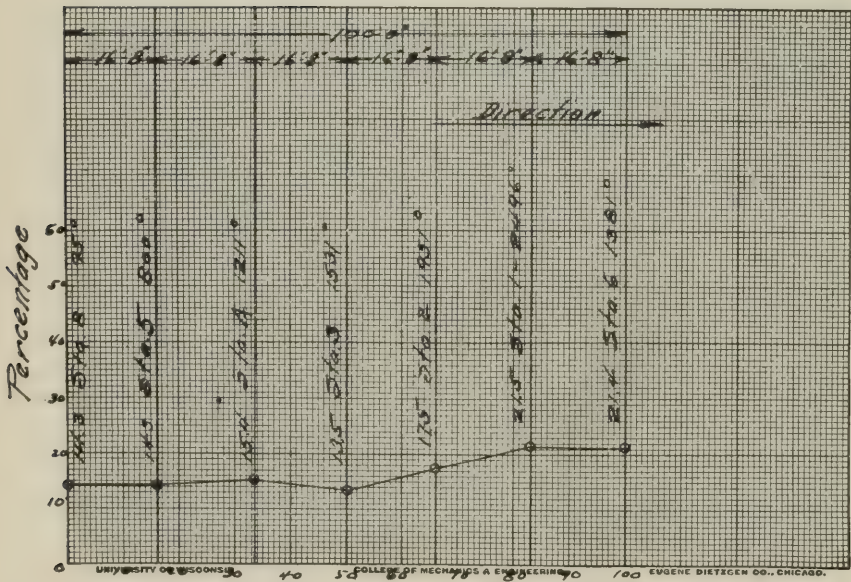 100'-0"
16'-8" 16'-8" 16'-8" 16'-8" 16'-8" 16'-8"
Direction
Percentage
60
50
40
30
20
10
0
14.3 Sta. 95°
14.3 Sta. 5 800°
15.4 Sta. 4 1211°
13.5 Sta. 3 1531°
17.5 Sta. 2 1931°
21.5 Sta. 1 - 2496°
21.4 Sta. 6 1381°
30 40 50 60 70 80 90 100
UNIVERSITY OF WISCONSIN COLLEGE OF MECHANICS & ENGINEERING EUGENE DIETZGEN CO., CHICAGO.